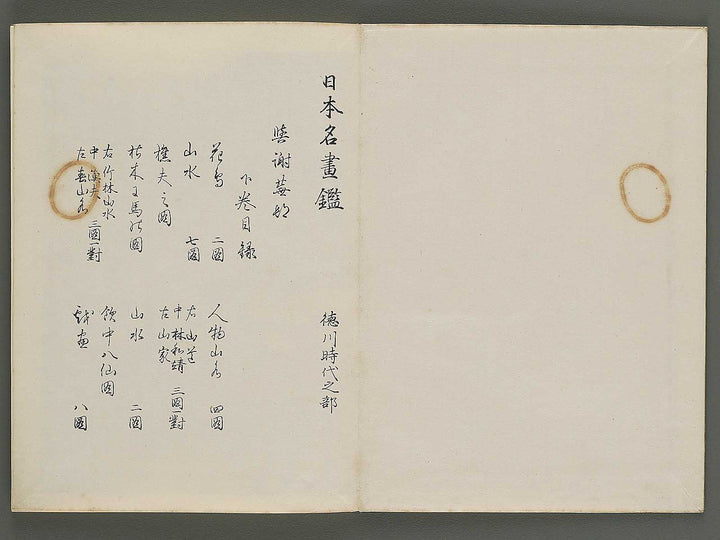 日本名畫鑑
德川時代之部
與謝蕪邨
下卷目錄
花鳥 二圖
山水 七圖
樵夫之圖
右 竹林山水
中
左 三圖一對
人物山水 四圖
右 山
中 林和靖
左 山家 三圖一對
山水 二圖
飲中八仙圖
戲畫 八圖